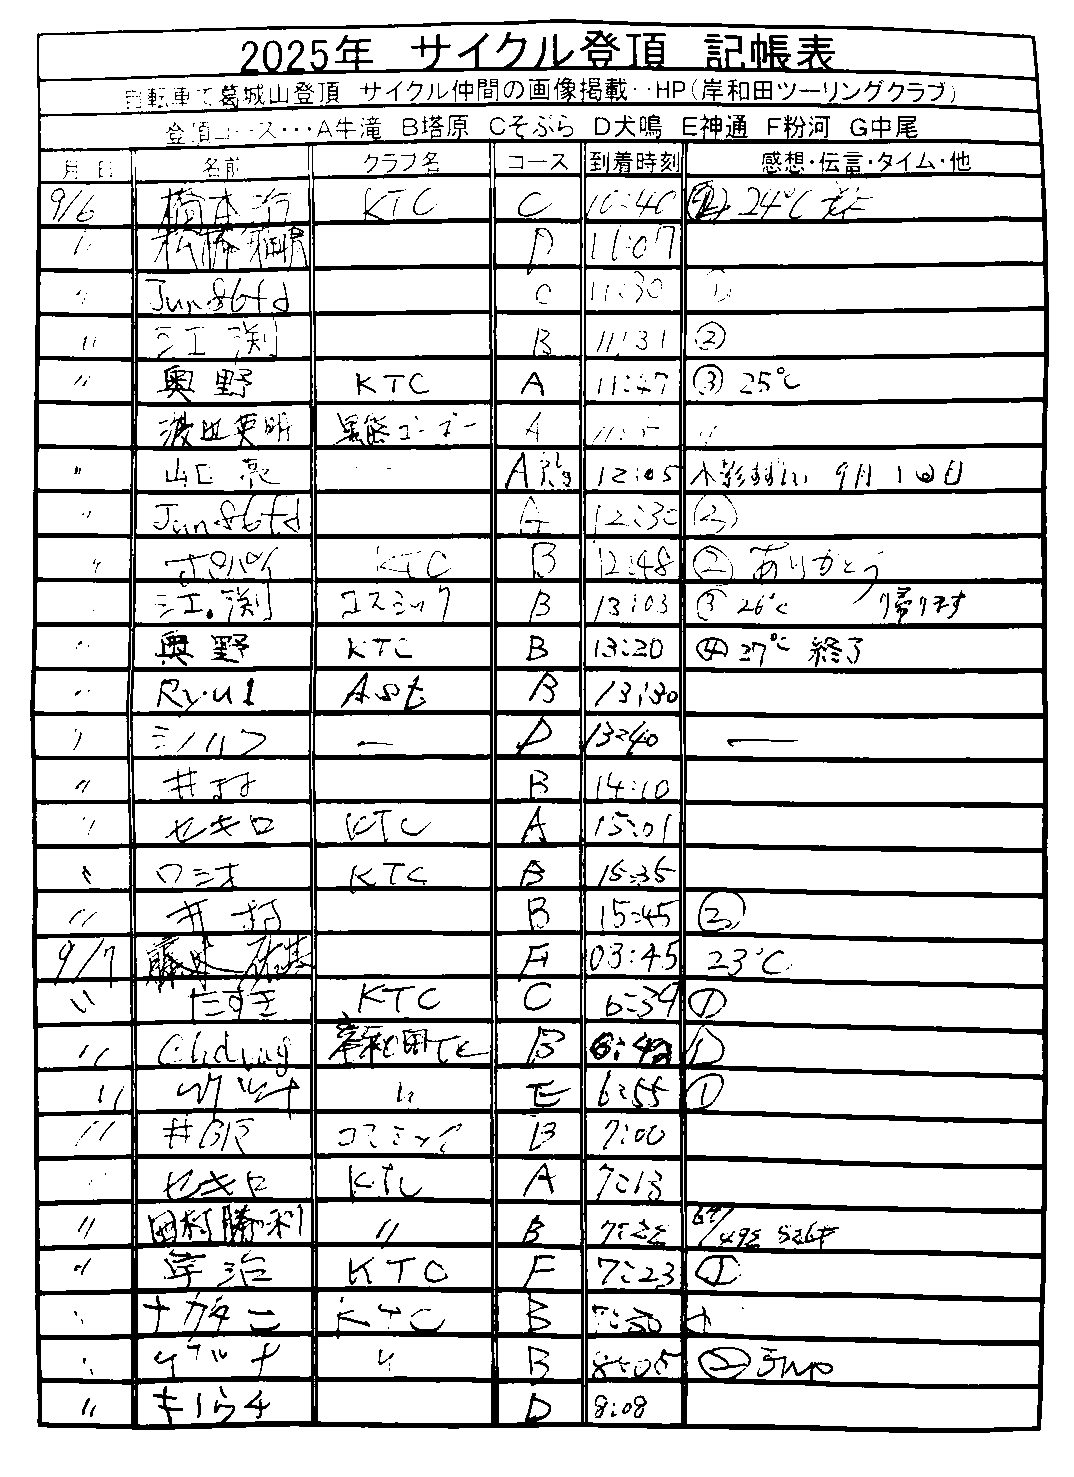 2025年 サイクル登頂 記帳表
自転車で葛城山登頂 サイクル仲間の画像掲載‥HP(岸和田ツーリングクラブ)
登頂コース･･･A牛滝 B塔原 Cそぶら D犬鳴 E神通 F粉河 G中尾
月 日 名前 クラブ名 コース 到着時刻 感想・伝言・タイム・他
9/6 橋本治 KTC C 10:40 24℃
〃 D 11:07
〃 Jun86fd C 11:30 ①
〃 江渕 B 11:31 ②
〃 奥野 KTC A 11:47 ③ 25℃
渡辺英明 A
〃 山口亮 A 12:05 9月1回目
〃 Jun86fd G 12:30 ②
〃 オカパイ KTC B 12:48 ② ありがとう
〃 江渕 コスミック B 13:03 ③ 26℃ 帰ります
〃 奥野 KTC B 13:20 ④ 27℃ 終了
〃 Ryu1 Ast B 13:30
〃 シノハラ ー D 13:40 ー
〃 井村 B 14:10
〃 セキロ KTC A 15:01
〃 ワシオ KTC B 15:35
〃 井村 B 15:45 ②
9/7 F 03:45 23℃
〃 たすき KTC C 6:39 ①
〃 岸和田TC B 6:49 ①
〃 〃 E 6:55 ①
〃 コスミック B 7:00
セキロ KTC A 7:13
〃 田村勝利 〃 B
〃 岸治 KTC F 7:23 ①
〃 ナカタニ KTC B 7:30
〃 〃 B 8:05 ②
〃 キムラチ D 8:08